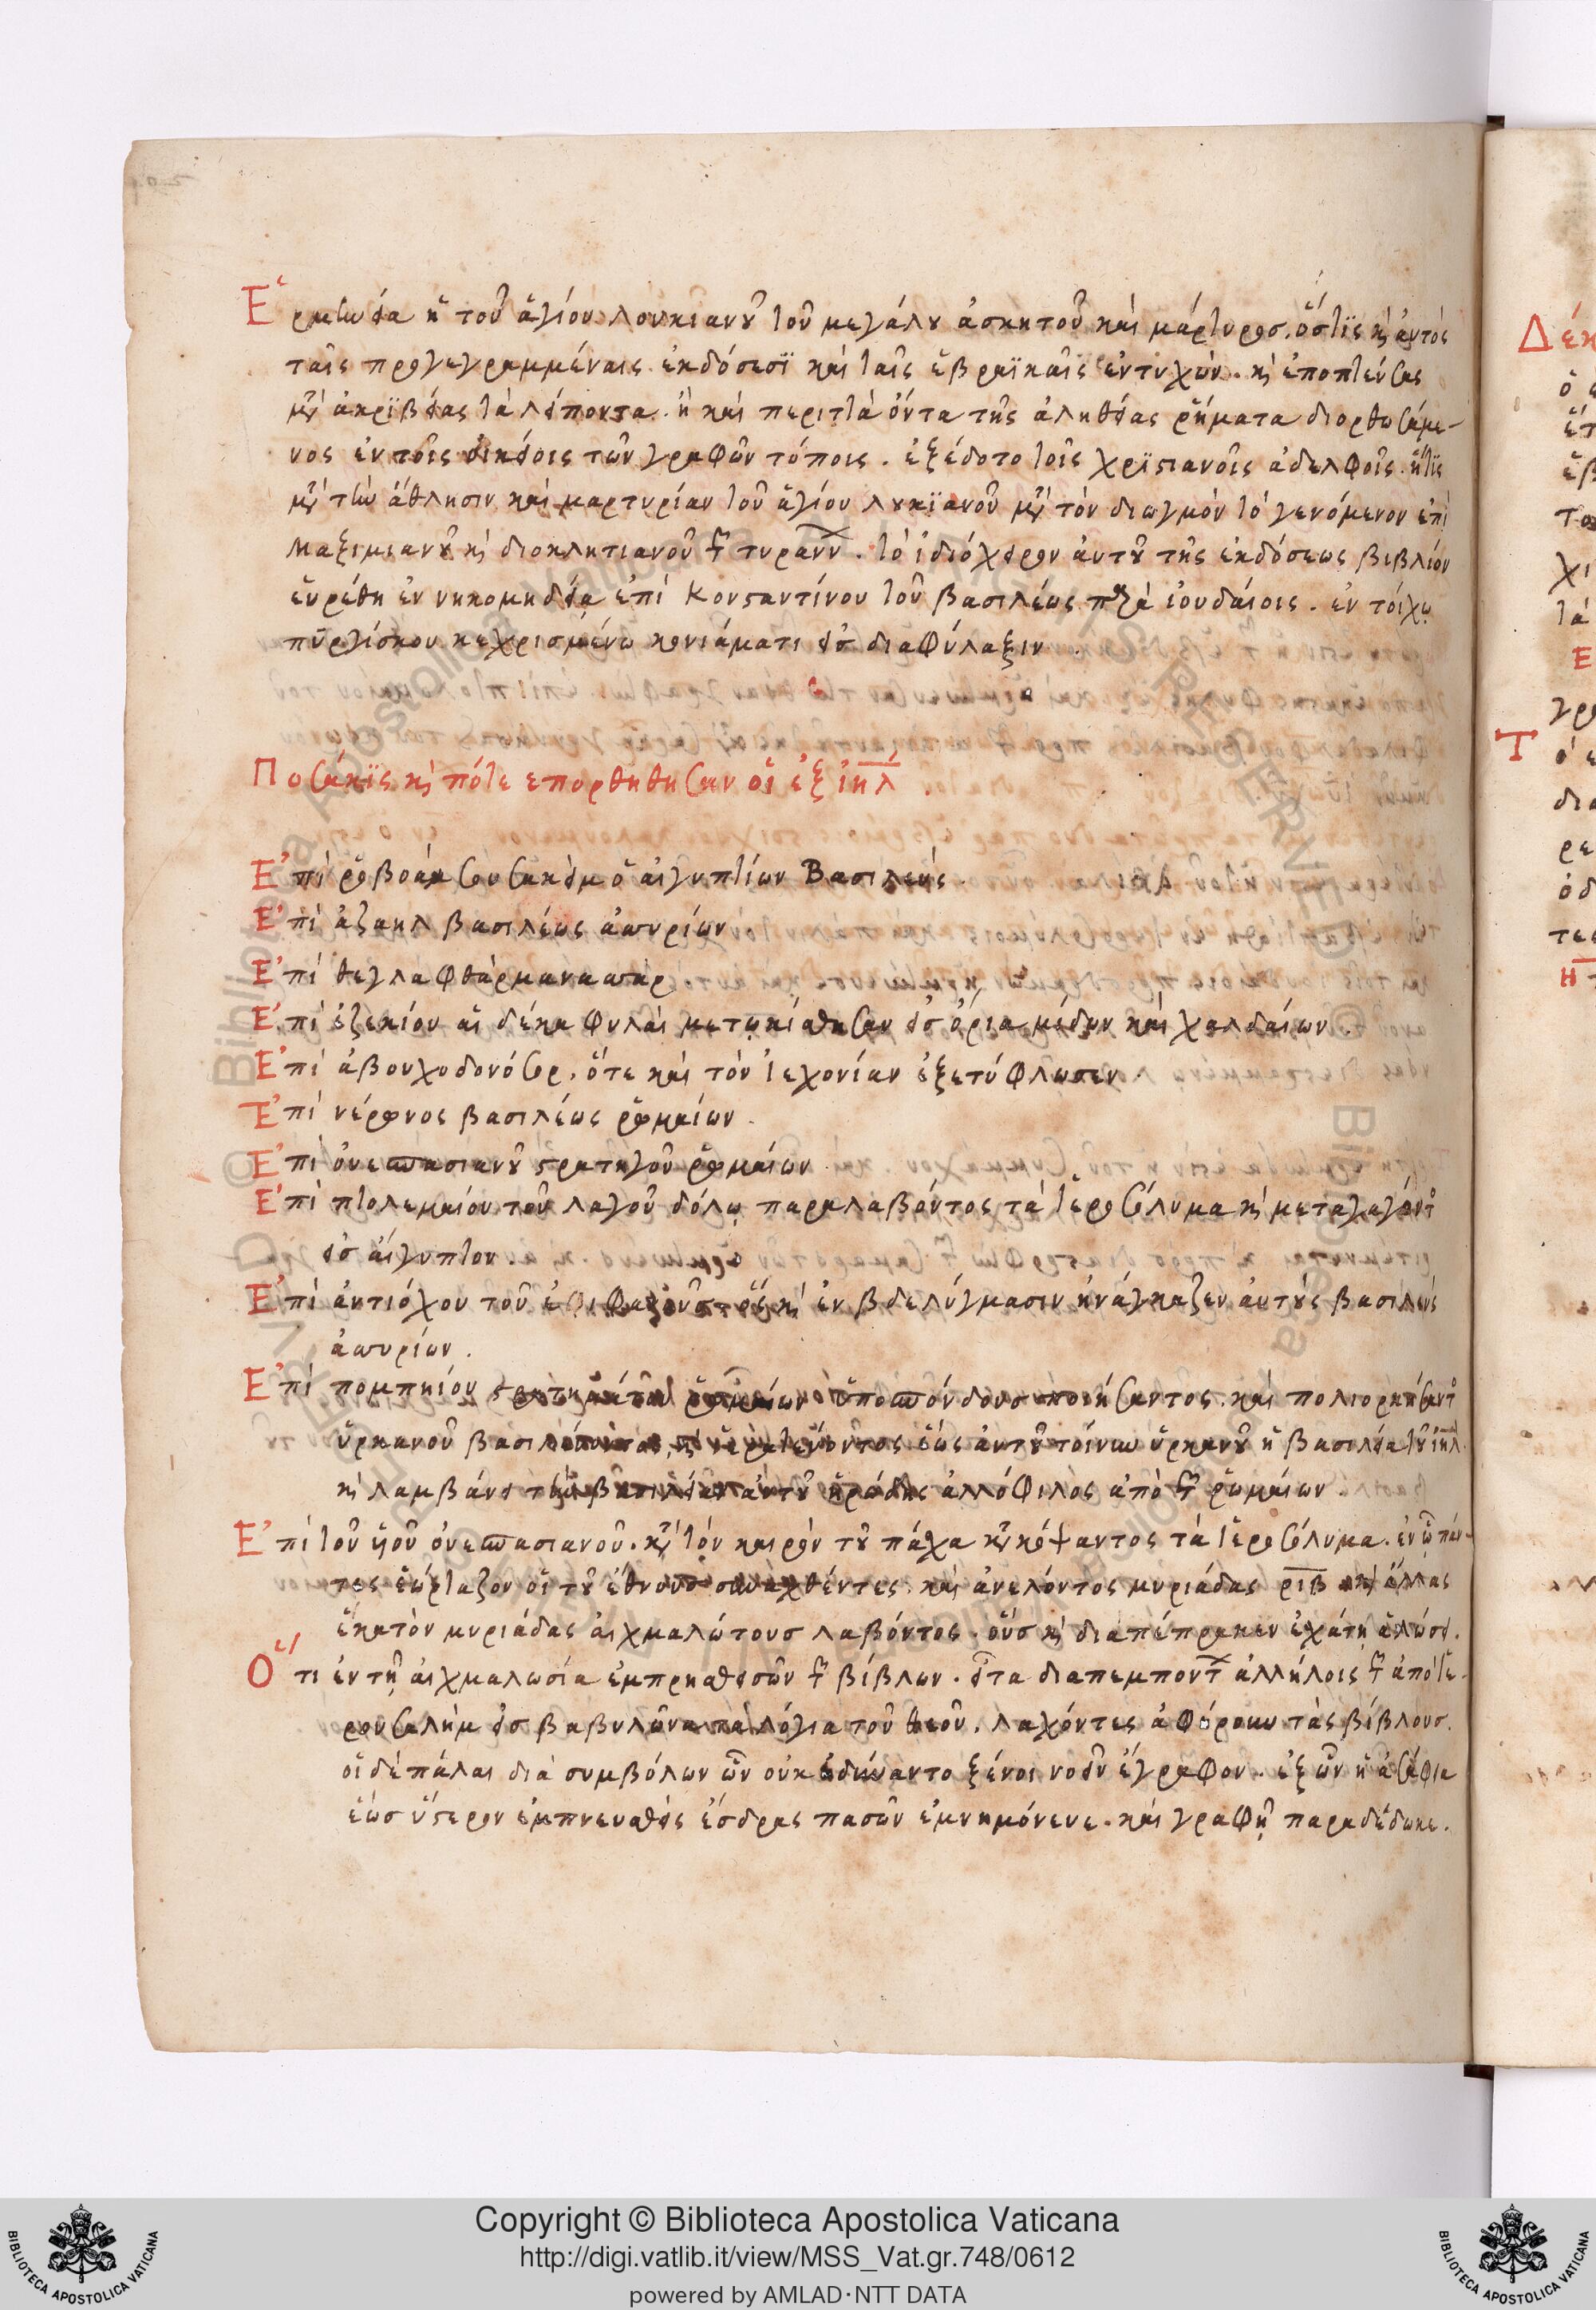 Ἑρμηνεία ἡ τοῦ ἁγίου λουκιανοῦ τοῦ μεγάλου ἀσκητοῦ καὶ μάρτυρος. ὅστις κὶ αὐτὸς
ταῖς προγεγραμμέναις ἐκδόσεσϊ καὶ ταῖς ἑβραϊκαῖς ἐντυχὼν. κὶ ἐποπτεύσας
μετὰ ἀκρϊβείας τὰ λείποντα. ἢ καὶ περιττὰ ὄντα τῆς ἀληθείας ῥήματα διορθωσάμε-
νος ἐν τοῖς οἰκείοις τῶν γραφῶν τόποις. ἐξέδοτο τοῖς χρϊστιανοῖς ἀδελφοῖς. ἥτις
μετὰ τὴν ἄθλησιν καὶ μαρτυρίαν τοῦ ἁγίου λουκϊανοῦ μετὰ τὸν διωγμὸν τὸ γενόμενον ἐπὶ
Μαξιμιανοῦ κὶ διοκλητιανοῦ τῶν τυράνν. τὸ ἰδιόχειρον αὐτοῦ τῆς ἐκδόσεως βιβλίον
εὑρέθη ἐν νηκομηδείᾳ ἐπὶ Κονσταντίνου τοῦ βασιλέως παρὰ ἰουδαίοις. ἐν τοίχῳ
πυργίσκου κεχρισμένω κονιάματι εἰς διαφύλαξιν.
Ποσάκϊς κὶ πότε επορθηθησαν οἱ ἐξ ἰηλ.
Ἐπὶ ῥοβοάμ σουσακεὶμ ὁ αἰγυπτίων Βασιλεύς.
Ἐπὶ ἀζαὴλ βασιλέως ἀσσυρίων
Ἐπὶ θεγλαφθάρμανασσὰρ
Ἐπὶ ἐζεκίου αἱ δέκα φυλαὶ μετῳκίσθησαν εἰς ὅρια μέδων καὶ χαλδαίων.
Ἐπὶ ἀβουχοδονόσορ. ὅτε καὶ τὸν ἰεχονίαν ἐξετύφλωσεν
Ἐπὶ νέρωνος βασιλέως ῥωμαίων.
Ἐπὶ ὀνεσπασιανοῦ στρατηγοῦ ῥωμαίων
Ἐπὶ πτολεμαίου τοῦ λαγοῦ δόλῳ παραλαβόντος τὰ ἱεροσόλυμα κὶ μεταγαγόντος
εἰς αἴγυπτον.
Ἐπὶ ἀντιόχου τοῦ κὶ ἐν βδελύγμασιν ἠνάγκαζεν αὐτοὺς βασιλεὺς
ἀσσυρίων.
Ἐπὶ πομπηίου ῥωμαίων ὑποσπόνδους ποιήσαντος. καὶ πολιορκήσαντος
ὑρκανοῦ βασιλεύοντος, κὶ ἱερατεύοντος ἕως αὐτοῦ τοίνυν ὑρκανοῦ ἡ βασιλεία τοῦ ἰηλ
κὶ λαμβάνει τὴν βασιλείαν αὐτοῦ ἡρώδης ἀλλόφιλος ἀπὸ τῶν ῥωμαίων.
Ἐπὶ τοῦ υἱοῦ ὀνεσπασιανοῦ. κατὰ τὸν καιρὸν τοῦ πάσχα κατακόψαντος τὰ ἱεροσόλυμα. ἐν ᾧ πάν-
τες ἑώρταζον οἱ τοῦ ἔθνους συναχθέντες. καὶ ἀνελόντος μυριάδας ριβ κὶ ἄλλας
ἑκατὸν μυριάδας αἰχμαλώτους λαβόντος. οὓς κὶ διαπέπρακεν ἐσχάτῃ ἁλώσει.
Ὅτι ἐν τῇ αἰχμαλωσία ἐμπρησθεισῶν τῶν βίβλων. εἶτα διαπεμποντ ἀλλήλοις τῶν ἀπὸ ἱε-
ρουσαλὴμ εἰς βαβυλῶνα τὰ λόγια τοῦ θεοῦ. λαχόντες ἀφεροιω τὰς βίβλους.
οἱ δὲ πάλαι διὰ συμβόλων ὧν οὐκ ἐδύναντο ξένοι νοεῖν ἔγραφον. ἐξ ὧν ἡ ἀσάφια
ἕως ὕστερον ἐμπνευσθεὶς ἔσδρας πασῶν ἐμνημόνευε. καὶ γραφῇ παραδέδωκε.
Copyright © Biblioteca Apostolica Vaticana
http://digi.vatlib.it/view/MSS_Vat.gr.748/0612
powered by AMLAD·NTT DATA
BIBLIOTECA APOSTOLICA VATICANA
BIBLIOTECA APOSTOLICA VATICANA